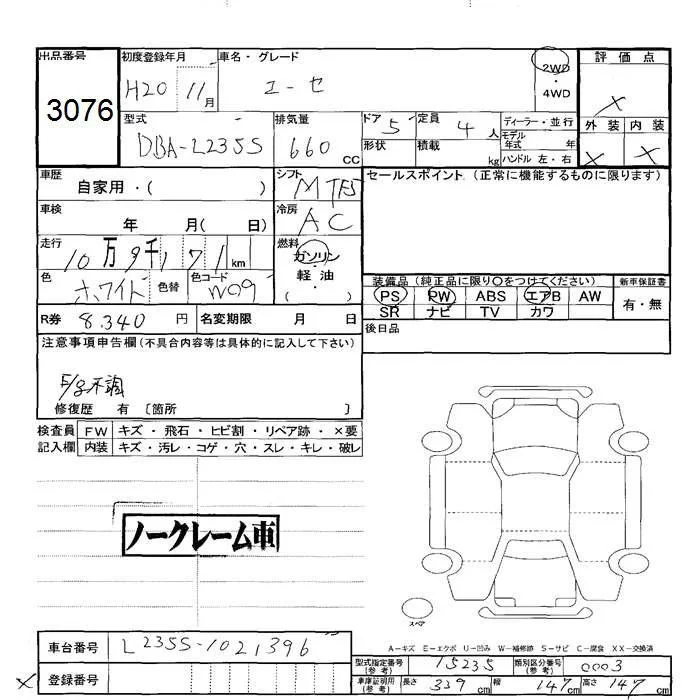 出品番号 初度登録年月 車名・グレード 2WD 評価点
3076 H20 11月 エーセ ・4WD X
型式 排気量 ドア 5 定員 4人 ディーラー・並行 外装 内装
DBA-L235S 660 CC 形状 積載 kg モデル年式 年 X X
ハンドル 左・右
車歴 自家用・( ) シフト M T F5 セールスポイント.(正常に機能するものに限ります)
車検 年 月( 日) 冷房 AC
走行 10万9千171km 燃料 ガソリン・軽油・( )
色 ホワイト 色替 色コード W09 装備品(純正品に限り○をつけてください) 新車保証書
PS PW ABS エアB AW 有・無
SR ナビ TV カワ
R券 8.340円 名変期限 月 日 後日品
注意事項申告欄(不具合内容等は具体的に記入して下さい)
E/g不調
修復歴 有 〔箇所 〕
検査員記入欄 FW キズ・飛石・ヒビ割・リペア跡・×要
内装 キズ・汚レ・コゲ・穴・スレ・キレ・破レ
ノークレーム車
スペア
A-キズ E-エクボ U-凹み W-補修跡 S-サビ C-腐食 XX-交換済
車台番号 L235S-1021396
型式指定番号(参考) 15235 類別区分番号(参考) 0003
X 登録番号
車庫証明用(参考) 長さ 339cm 幅 147cm 高さ 147cm